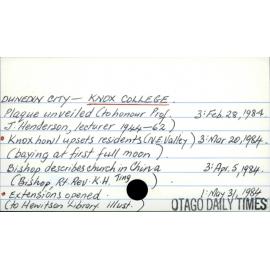 DUNEDIN CITY — KNOX COLLEGE.
Plaque unveiled (to honour Prof. 3: Feb. 28, 1984
J. Henderson, lecturer 1944-62)
• Knox howl upsets residents (N.E. Valley) 3: Mar 20, 1984.
(baying at first full moon).
Bishop describes church in China 3: Apr, 5, 1984.
(Bishop, Rt. Rev. K.H. Ting)
• Extensions opened. 1: May 31, 1984
(to Hewitson Library. illust.) OTAGO DAILY TIMES